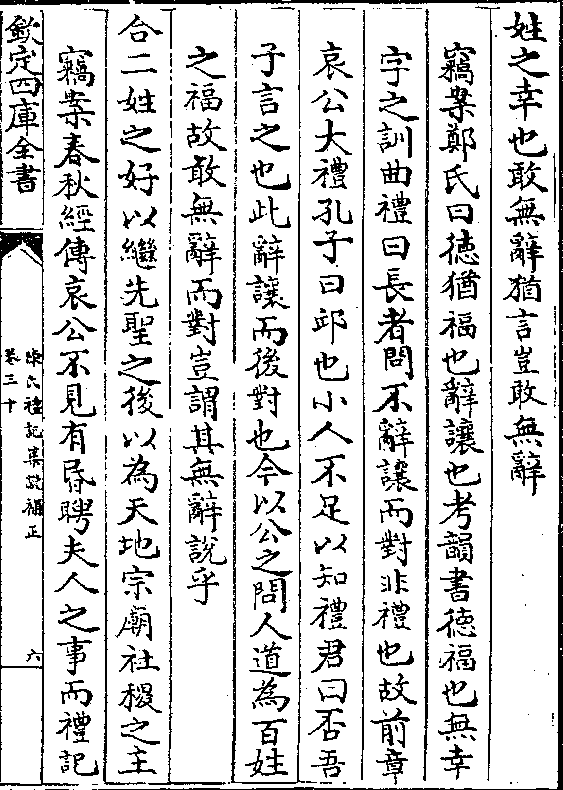 姓之幸也敢無辭猶言豈敢無辭
竊案鄭氏曰德猶福也辭讓也考韻書德福也無幸
字之訓曲禮曰長者問不辭讓而對非禮也故前章
哀公大禮孔子曰邱也小人不足以知禮君曰否吾
子言之也此辭讓而後對也今以公之問人道為百姓
之福故敢無辭而對豈謂其無辭說乎
合二姓之好以繼先聖之後以為天地宗廟社稷之主
竊案春秋經傳哀公不見有昏聘夫人之事而禮記
欽定四庫全書
陳氏禮記集說補正
卷三十
六